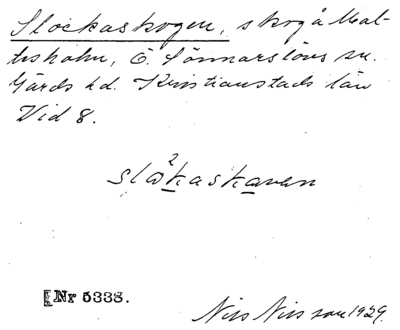 Slockaskogen, skog å Mat-
tesholm, Ö. Sönnarslövs sn.
Gärds hd. Kristianstads län
Vid 8.
2
slåkaskaven
Nr 5338.
Nils Nilsson 1929.